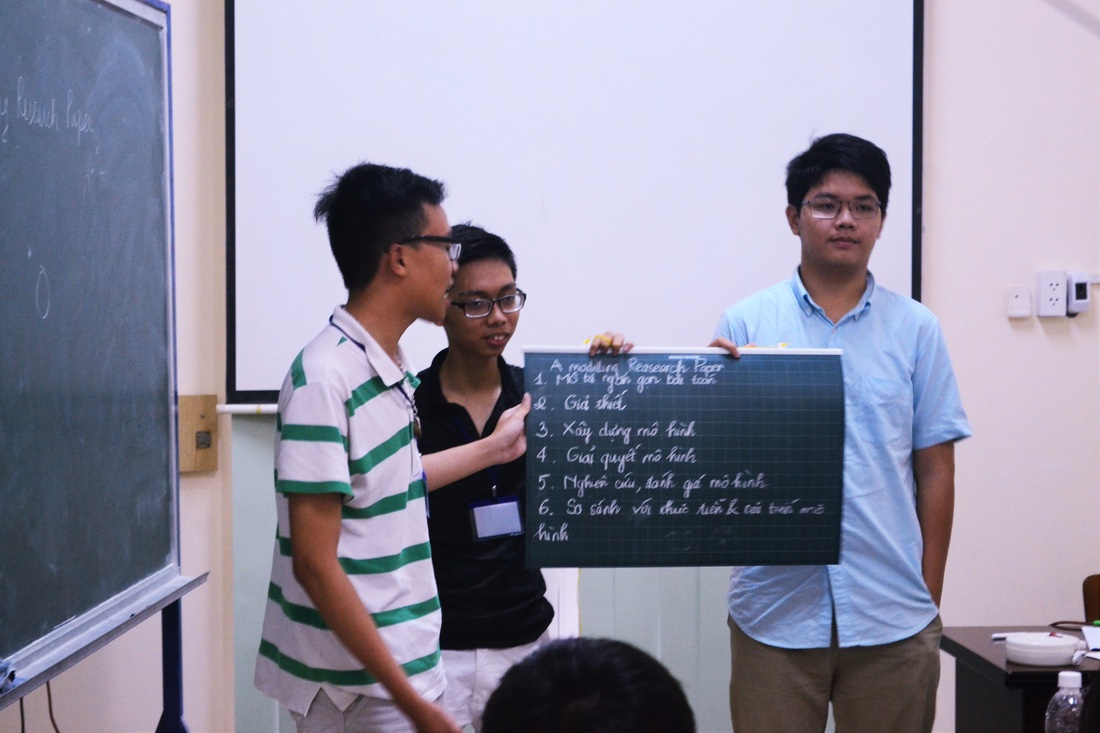 Research Paper
A modeling Reasearch Paper
1. Mô tả ngắn gọn bài toán
2. Giả thiết
3. Xây dựng mô hình
4. Giải quyết mô hình
5. Nghiên cứu, đánh giá mô hình
6. So sánh với thực tiễn & cải tiến mô
hình